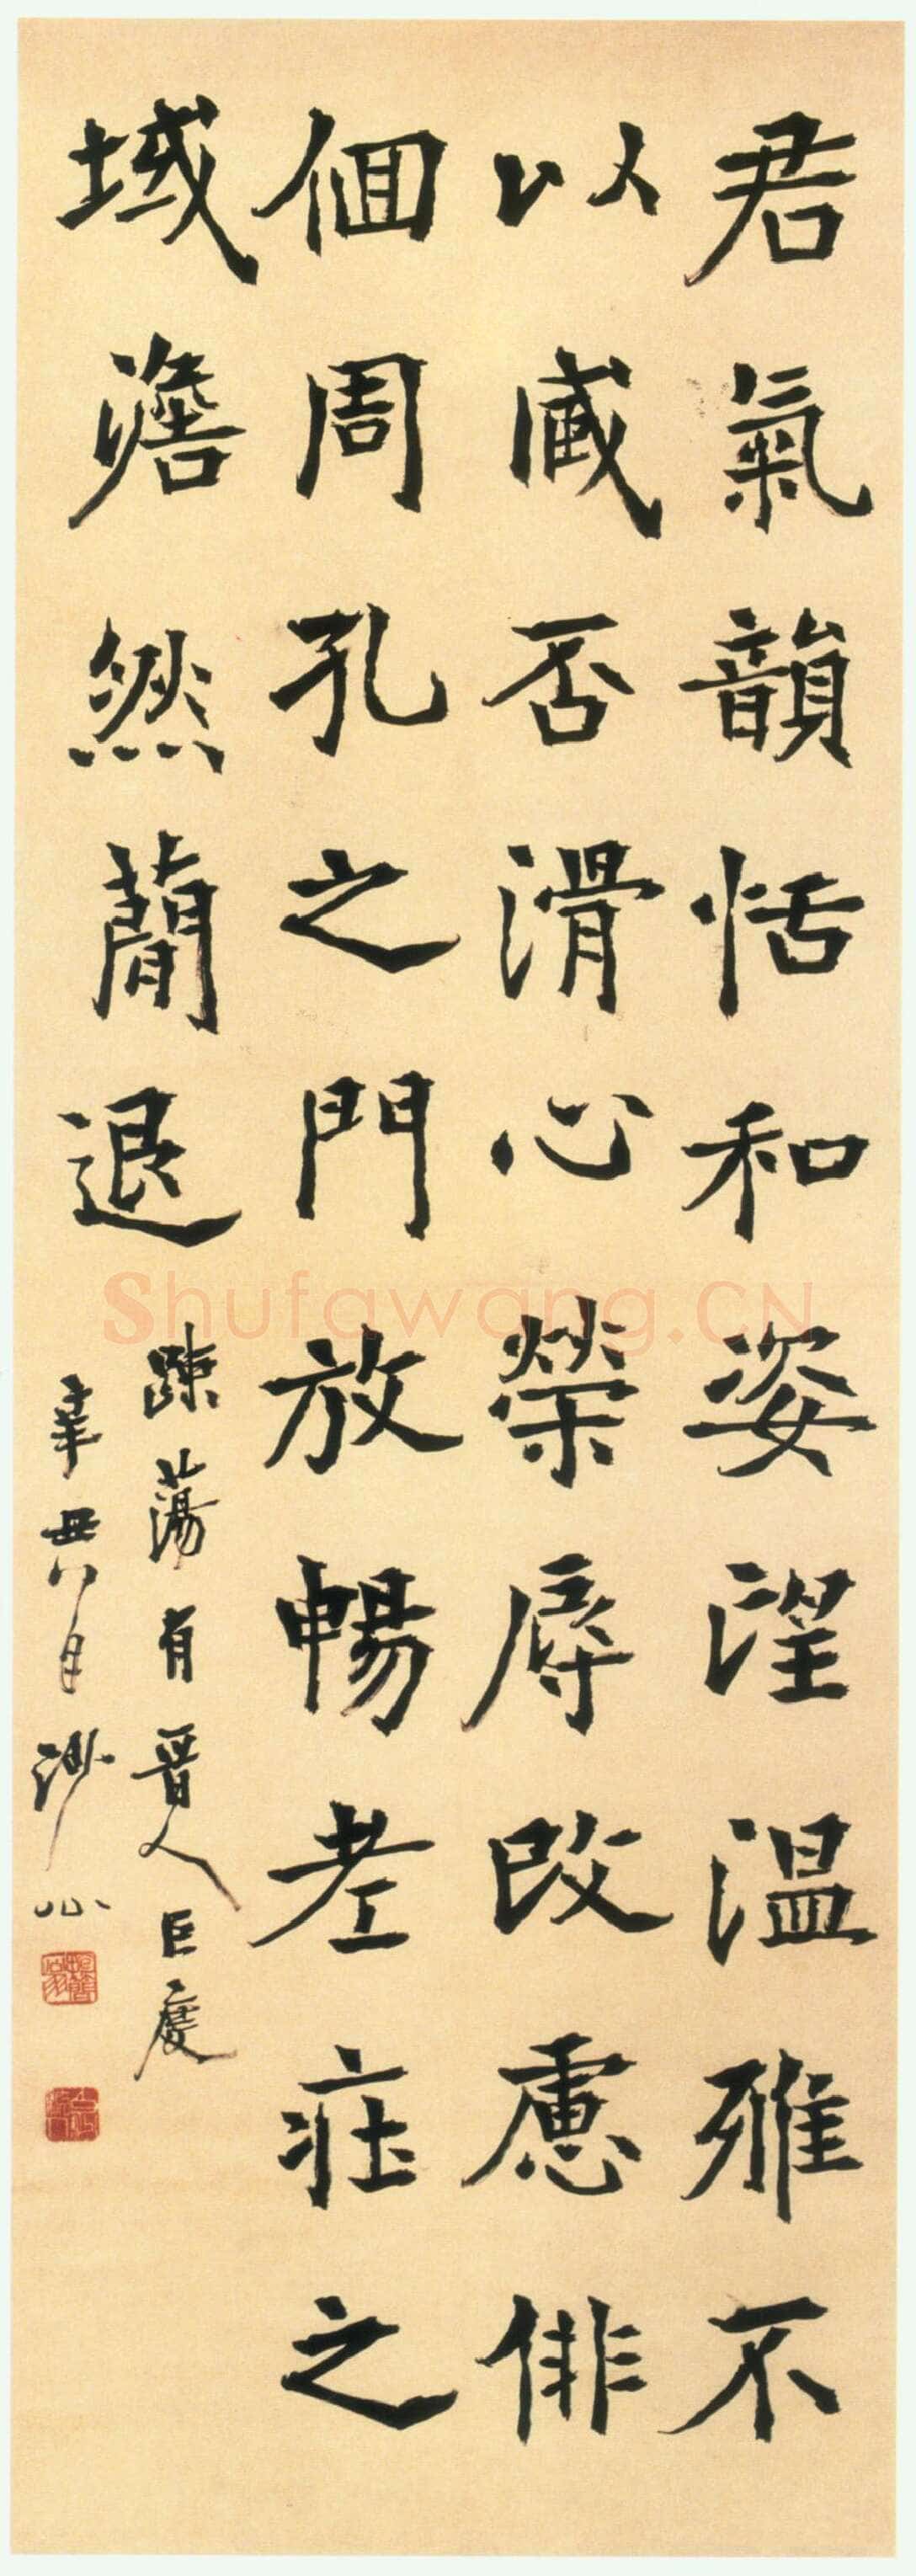 君氣韻恬和姿望温雅不
以臧否滑心榮辱改慮俳
佪周孔之門放暢老莊之
域澹然蕑退
疎蕩有晉人巨度
辛丑八月沙心
Shufawang.CN